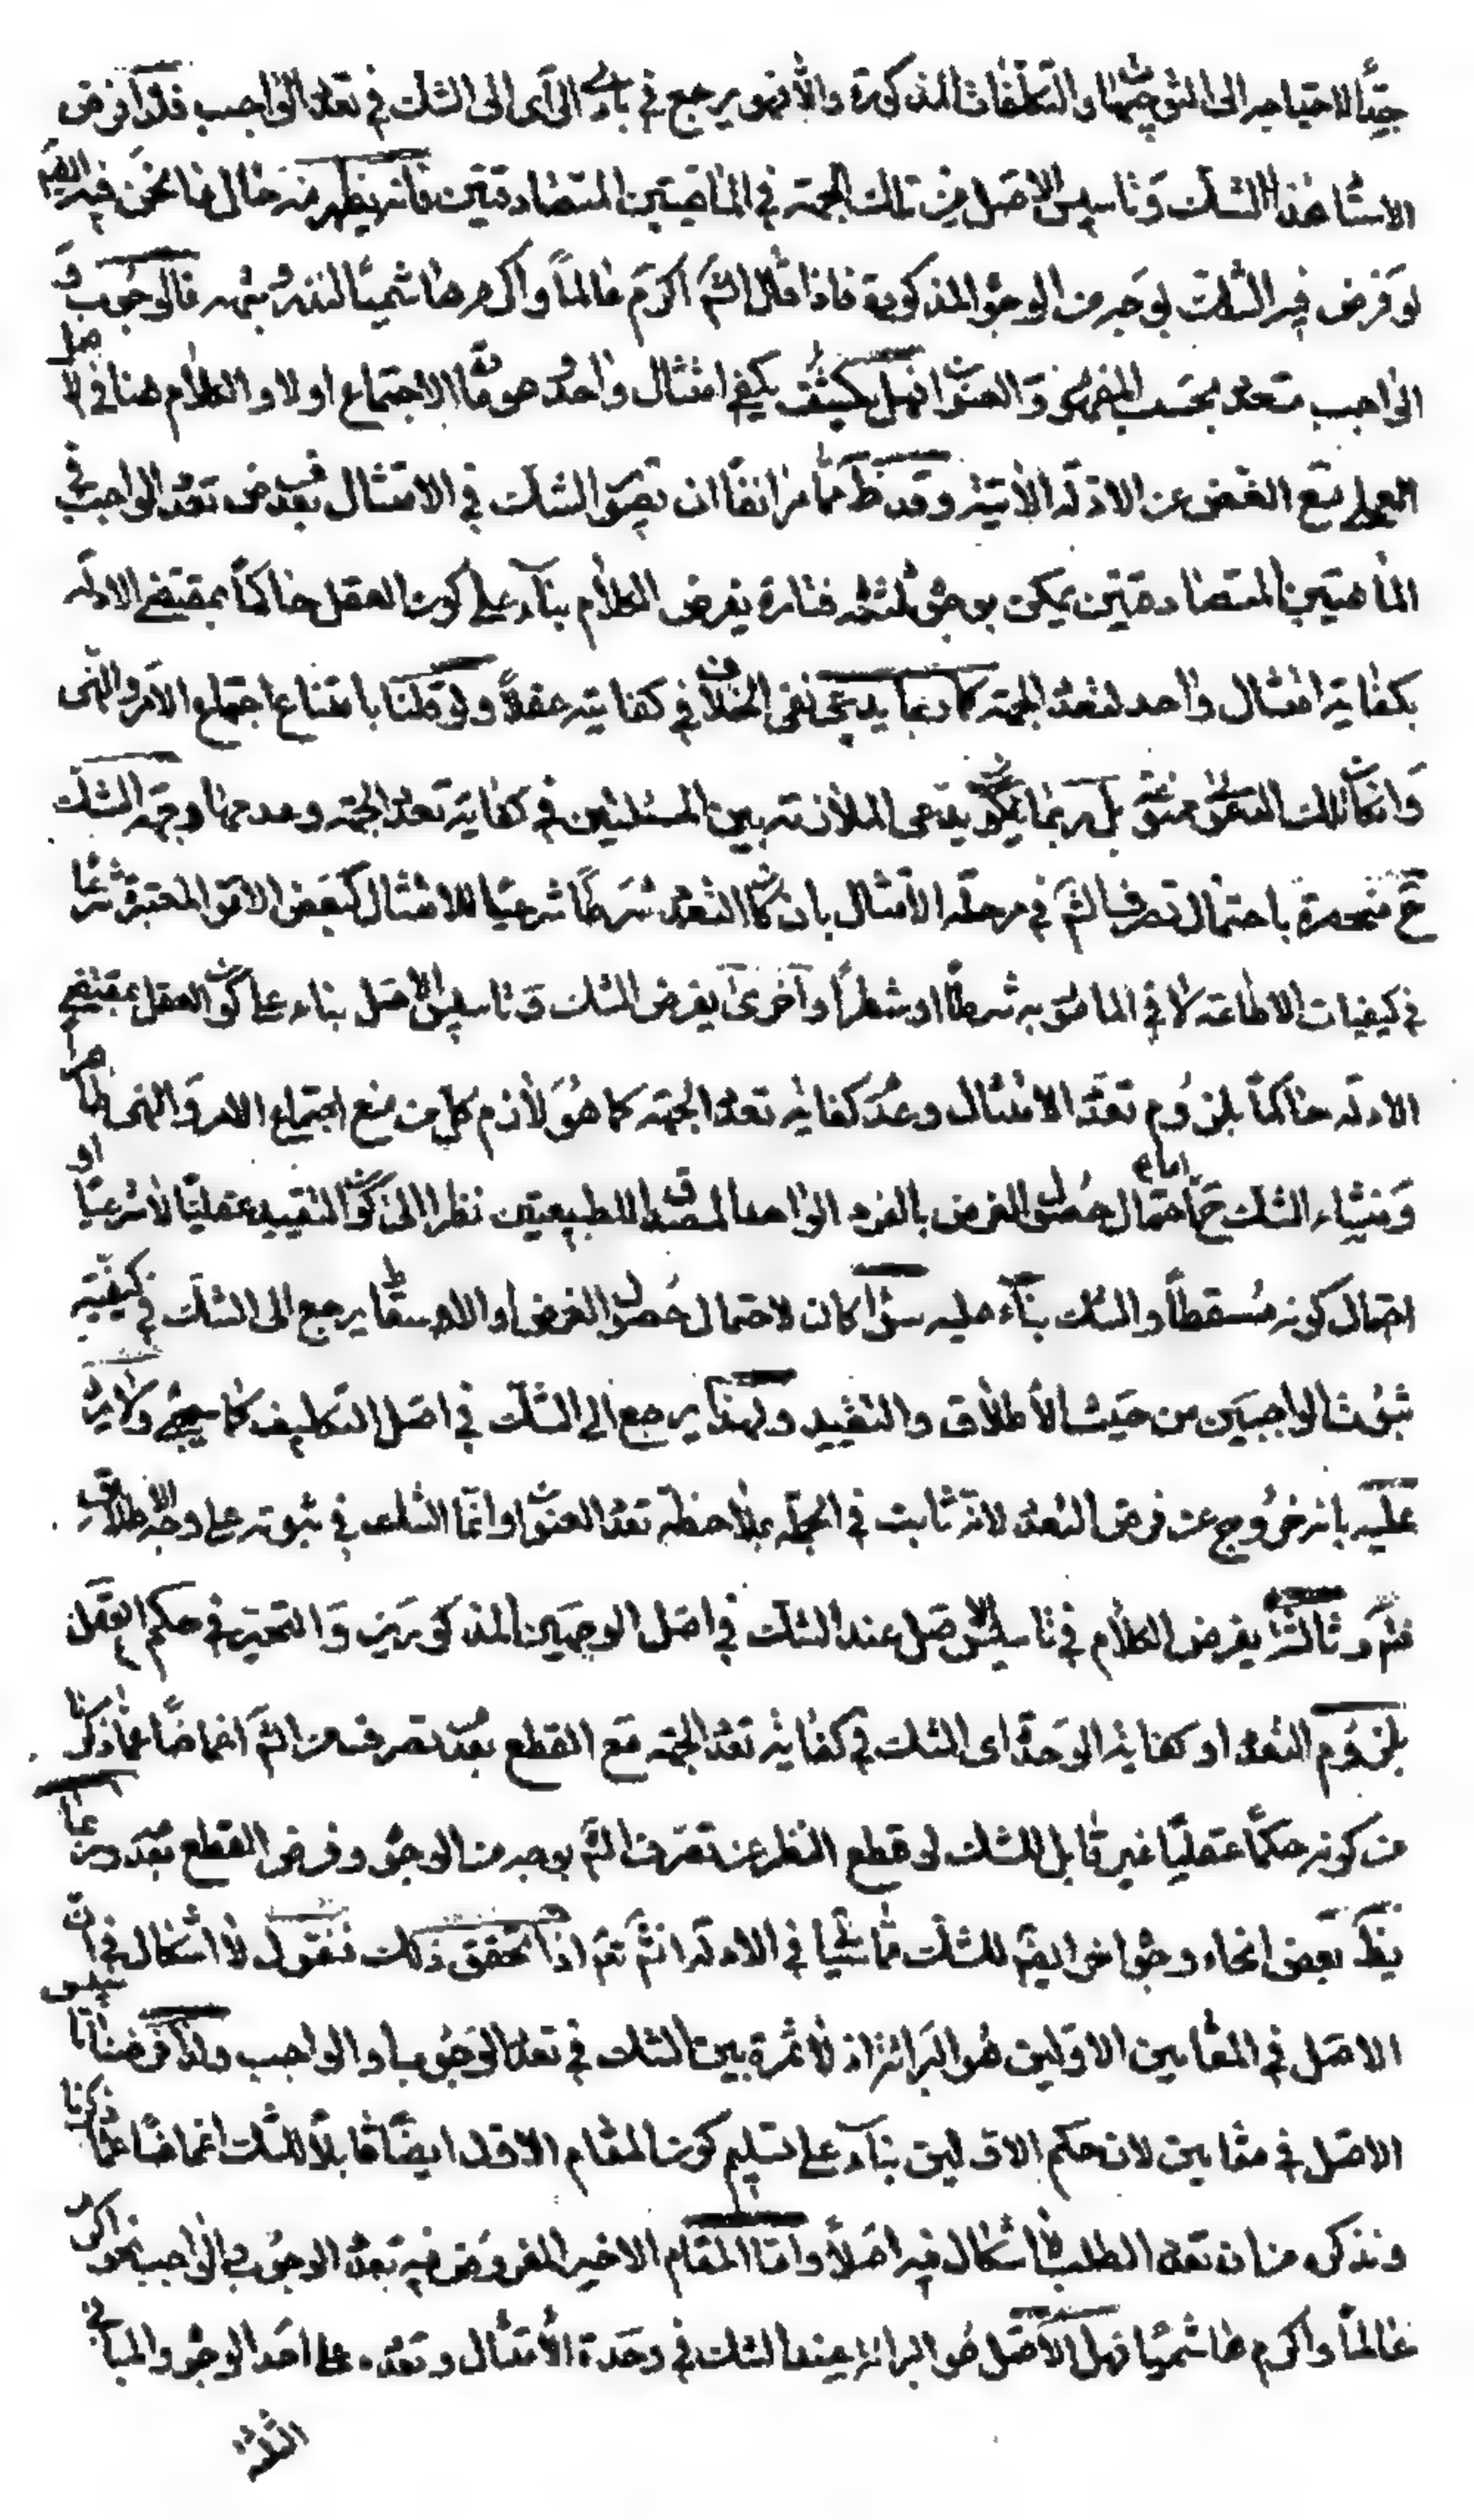 جدّا لاحتياجه الى التوجيها والتكلفات المذكورة والا فهو يرجع في بادى الراى الى الشك في تعدد الواجب فلذا فرض
الاستا هذا الشك وتاسيس الاصل من تلك الجهة في الماهيتين المتصادقتين فانه يظهر منه حال ما نحن فيه ايضا
لو فرض فيه الشك بوجه من الوجوه المذكورة فاذا قال الشم اكرم عالماً واكرم هاشمياً لتعدد بثمه فالوجوب و
الواجب متعدد بحسب المفهوم والعنوان فهل يكتفى امتثال واحد هو مادّة الاجتماع اولا والكلام هنا في
العمل مع الغض عن الادلة الآتية وقد ظهر مما مر انفا ان تصوير الشك في الامتثال بعد فرض تعدد الواجب في
الماهيتين المتصادقتين يمكن بوجوه ثلثة فتارة يفرض الكلام بناء على كون العقل حاكماً بمقتضى الادلة
بكفاية امتثال واحد لتعدد الجهة كما ربما يدعى نفى الخلاف في كفايته عقلاً ولو قلنا بامتناع اجتماع الامر والنهى
وانكان ذلك بل ربما يدعى الملازمة بين المسئلتين في كفاية تعدد الجهة وعدمها وجهة الشك
ح منحصرة باحتمال تصرف الشم في مرحلة الامتثال بان كان التعدد شرطاً شرعيّا للامتثال كبعض الامور المعتبرة شرعا
في كيفيات الاطاعة لا في المامور به شرطاً او شطراً واخرى يفرض الشك وتاسيس الاصل بناء على كون العقل بمقتضى
الادلة حاكماً بلزوم تعدد الامتثال وعدم كفاية تعدد الجهة كما هو لازم كل من منع اجتماع الامر والنهى
ومنشاء الشك ح اما احتمال حصول الغرض بالفرد الواحد المصداق للطبيعتين نظرا الى كون التقييد عقليّا لا شرعيّا او
احتمال كونه مسقطاً والشك بناء عليه سواء كان لاحتمال حصول الغرض او الاسقاط يرجع الى الشك في كيفية
ثبوت الواجبين من حيث الاطلاق والتقييد ولهذا يرجع الى الشك في اصل التكليف كما سيجئ ولا يرد
عليه بانه خروج عن فرض التعدد لانه ثابت في الجملة بملاحظة تعدد العنوان وانما الشك في ثبوته على وجه الاطلاق
وثالثة يفرض الكلام في تاسيس الاصل عند الشك في اصل الوجهين المذكورين والتحير في حكم العقل
بلزوم التعدد او كفاية الوحدة اى الشك في كفاية تعدد الجهة مع القطع بعدم تصرف من الشم اغماضاً عما ذكرنا
من كونه حكماً عقليّا غير قابل للشك لو قطع النظر عن تصرف الشم بوجه من الوجوه وفرض القطع بعدمه وربما
يظهر بعض انحاء وجوه اخر ايضا للشك مما سيجئ في الادلة انشم ثم اذا تحقق ذلك فنقول لا اشكال في ان
الاصل في المقامين الاولين هو البرائة اذ لا ثمرة بين الشك في تعدد الوجوب او الواجب ولذا فرضنا تاسيس
الاصل في مقامين لان حكم الاولين بناء على تسليم كون المقام الاول ايضا قابلاً للشك اغماضاً عما ذكرنا
ونذكره من ان تعدد الطلب لا اشكال فيه اصلاً واما المقام الاخير المفروض فيه تعدد الوجوب والواجب نحو اكرم
عالماً واكرم هاشميّا فهل الاصل هو البرائة عند الشك في وحدة الامتثال وتعدده على احد الوجوه والمبانى
الثلثة